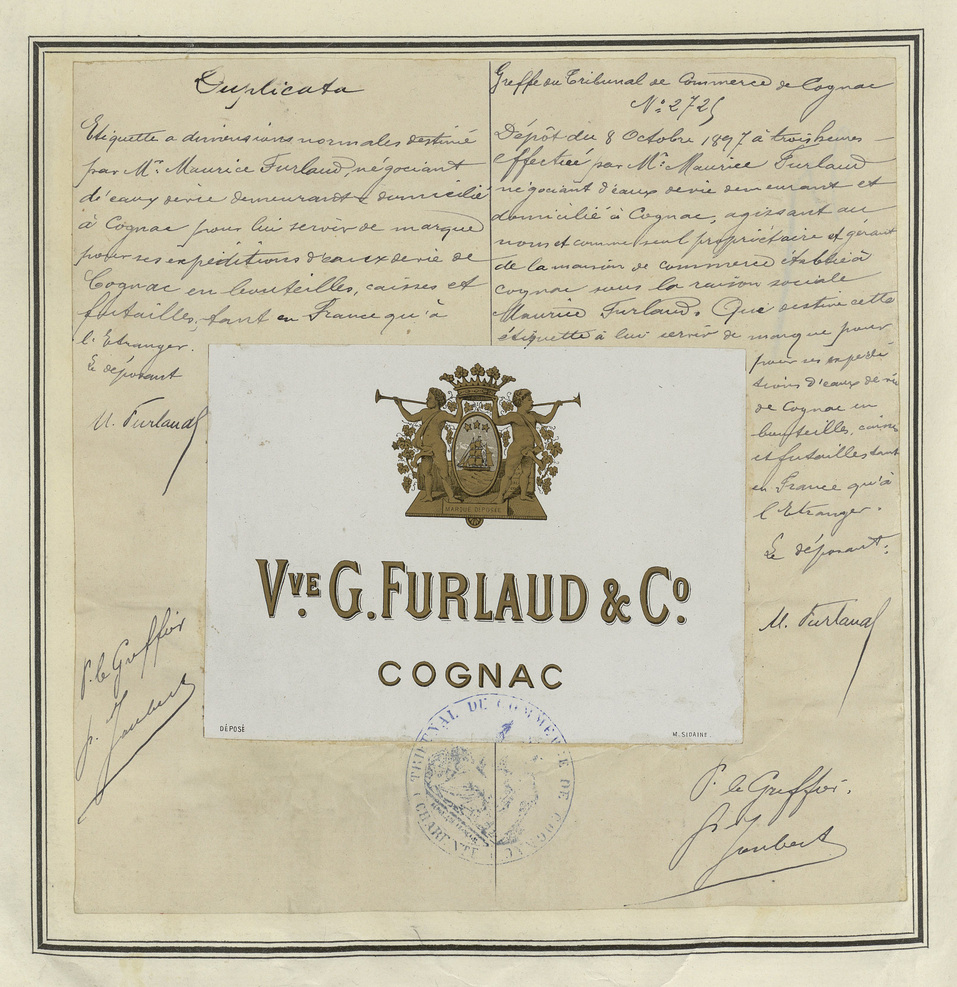 Duplicata
Etiquette a dimensions normales destiné
par Mr. Maurice Furlaud, négociant
d'eaux devie demeurant & domicilié
à Cognac pour lui servir de marque
pour ses expéditions d'eaux devie de
Cognac en bouteilles, caisses et
futailles, tant en France qu'à
l'Etranger.
Le déposant
M. Furlaud
P. le Greffier
Joubert
Greffe du Tribunal de Commerce de Cognac
No. 2725
Dépôt du 8 Octobre 1897 à trois heures
Effectué par Mr. Maurice Furlaud
négociant d'eaux devie demeurant et
domicilié à Cognac, agissant au
nom et comme seul propriétaire et gérant
de la maison de commerce établie à
cognac sous la raison sociale
Maurice Furlaud. Qui destine cette
étiquette à lui servir de marque pour
pour ses expédi
tions d'eaux de vie
de Cognac en
bouteilles, caisses
et futailles tant
en France qu'à
l'Etranger.
Le déposant.
M. Furlaud
P. le Greffier.
Joubert
MARQUE DÉPOSÉE
VVE G. FURLAUD & CO.
COGNAC
DÉPOSÉ
W. SIDAINE.
TRIBUNAL DE COMMERCE DE COGNAC
CHARENTE